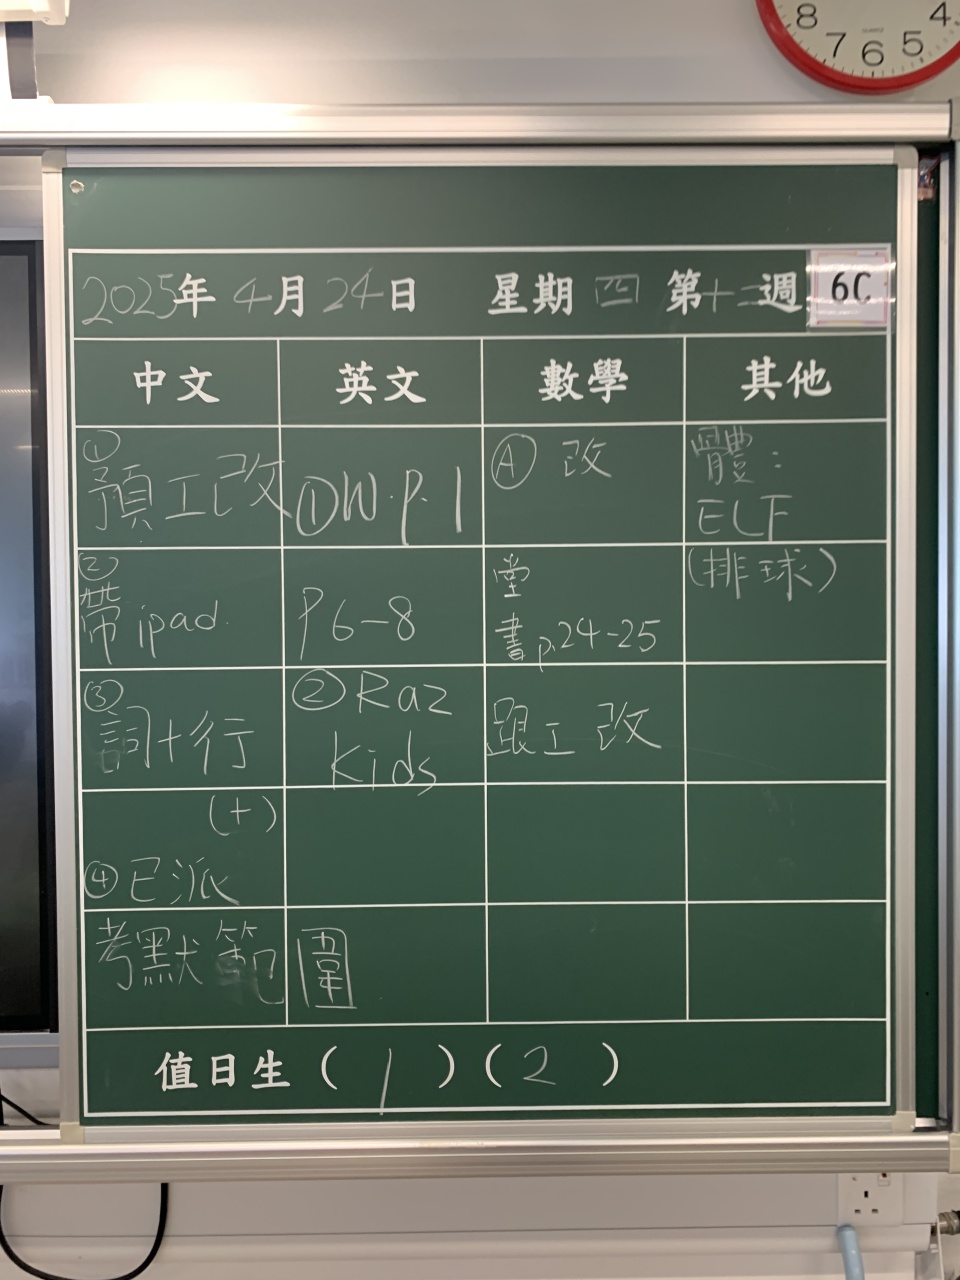 8 7 6 5 4
2025年 4月 24日 星期 四 第十二週 6C
中文 英文 數學 其他
①
預工改
②
帶ipad.
③
詞+行
(+)
④已派
考默範圍
①W.P.1
P6-8
②Raz
Kids
Ⓐ 改
堂
書p.24-25
跟工改
體:
ELF
(排球)
值日生 ( 1 ) ( 2 )